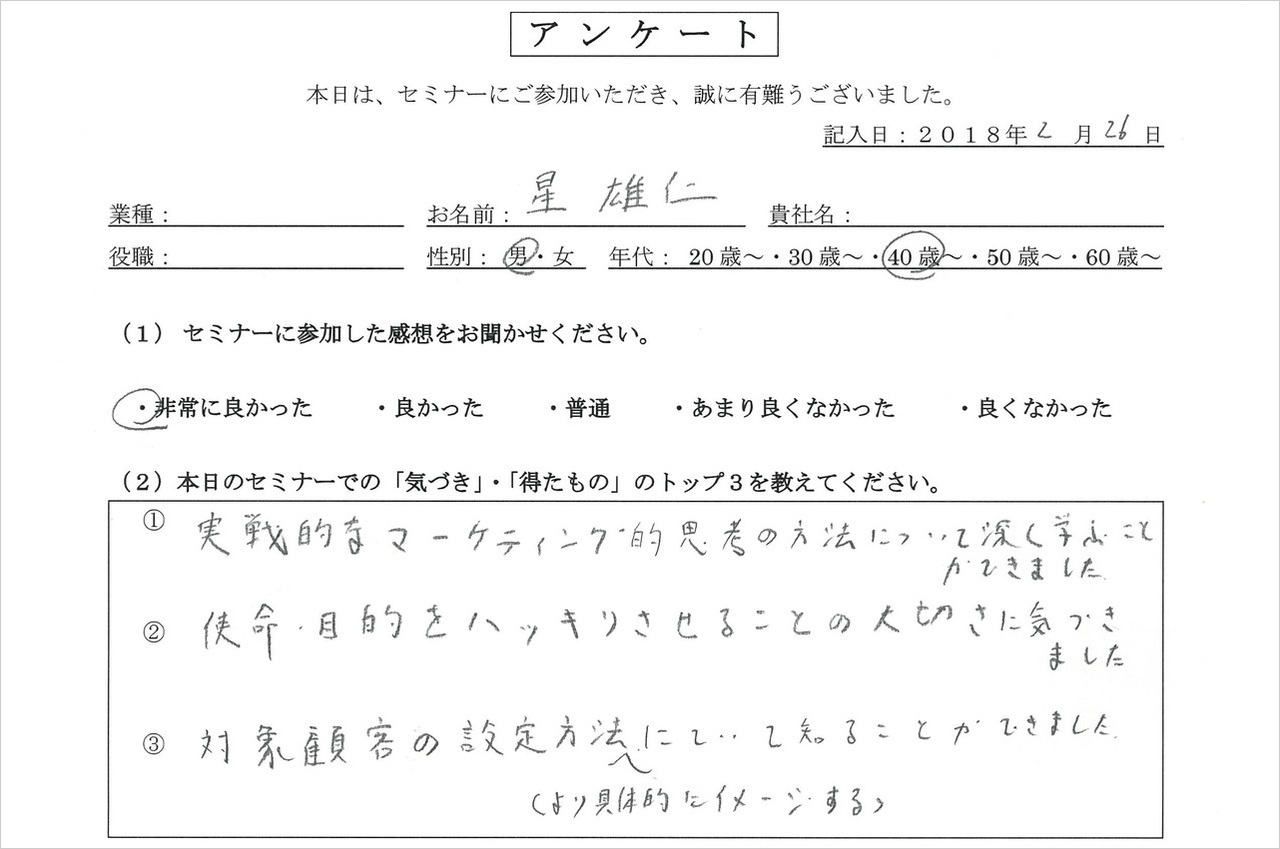 アンケート
本日は、セミナーにご参加いただき、誠に有難うございました。
記入日：２０１８年 2 月 26 日
業種： お名前： 星 雄仁 貴社名：
役職： 性別： 男・女 年代： 20歳～・30歳～・40歳～・50歳～・60歳～
（１） セミナーに参加した感想をお聞かせください。
・非常に良かった ・良かった ・普通 ・あまり良くなかった ・良くなかった
（２）本日のセミナーでの「気づき」・「得たもの」のトップ３を教えてください。
① 実戦的なマーケティング的思考の方法について深く学ぶこと
ができました
② 使命・目的をハッキリさせることの大切さに気づき
ました
③ 対象顧客の設定方法について知ることができました
（より具体的にイメージする）